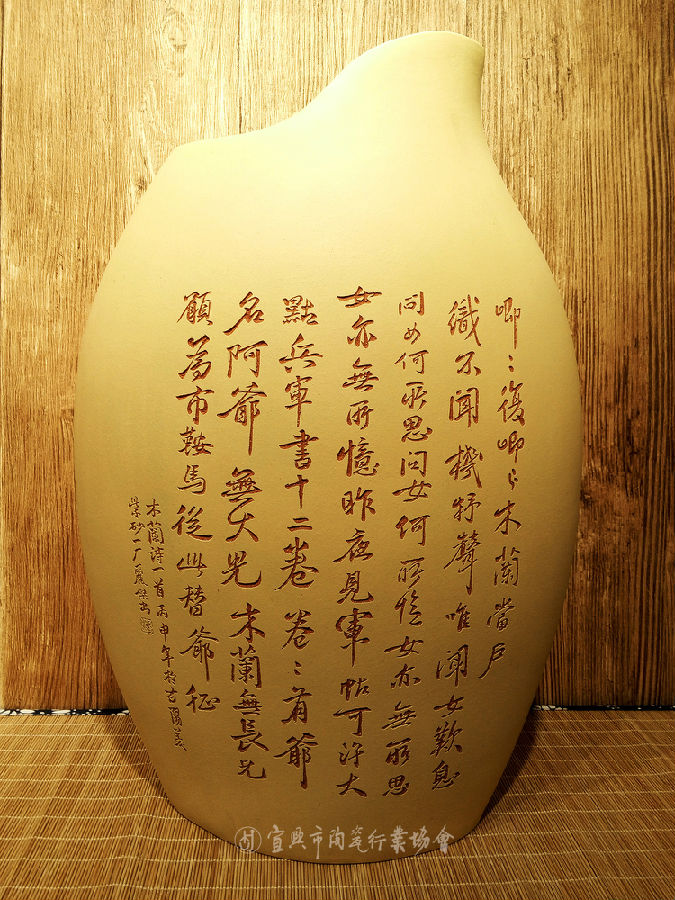 唧〻復唧〻木蘭當戶
織不聞機杼聲唯聞女歎息
問女何所思問女何所憶女亦無所思
女亦無所憶昨夜見軍帖可汗大
點兵軍書十二卷卷〻有爺
名阿爺無大兒木蘭無長兄
願為市鞍馬從此替爺征
木蘭詩一首丙申年於古
紫砂一厂
宜興市陶瓷行業協會